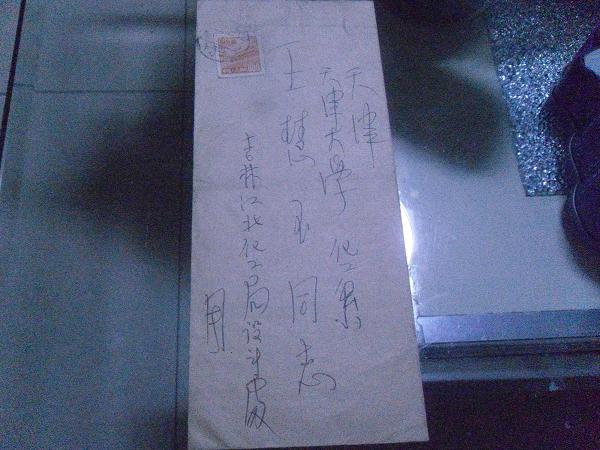 天津
天津大学 化工系
王慧玉同志
吉林江北化工局设计处
周